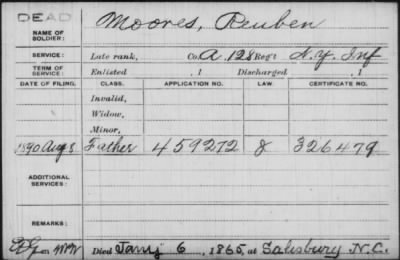 DEAD
NAME OF SOLDIER: Moores, Reuben
SERVICE: Late rank, Co. A, 128 Reg't N.Y. Inf
TERM OF SERVICE: Enlisted , 1 Discharged , 1
DATE OF FILING. CLASS. APPLICATION NO. LAW. CERTIFICATE NO.
Invalid,
Widow,
Minor,
1890 Aug 8 Father 459272 J 326479
ADDITIONAL SERVICES:
REMARKS:
Died Jany 6, 1865, at Salisbury N.C.